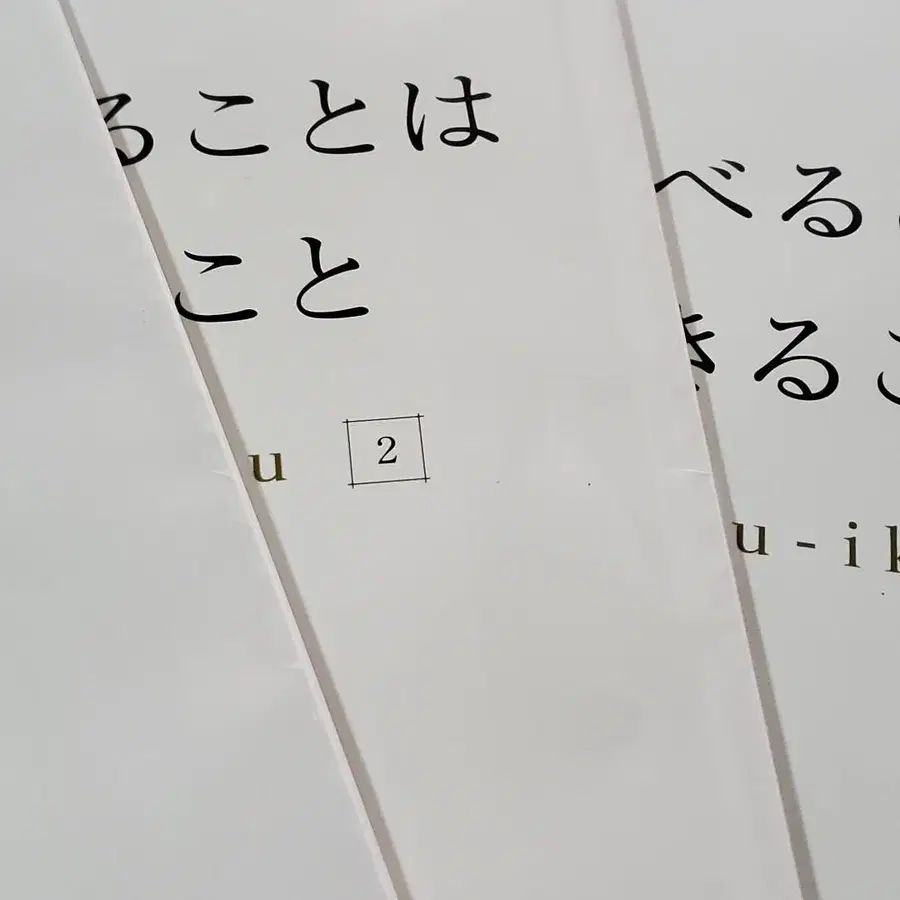 ることは
こと
u 2
べる
きるこ
u-ik